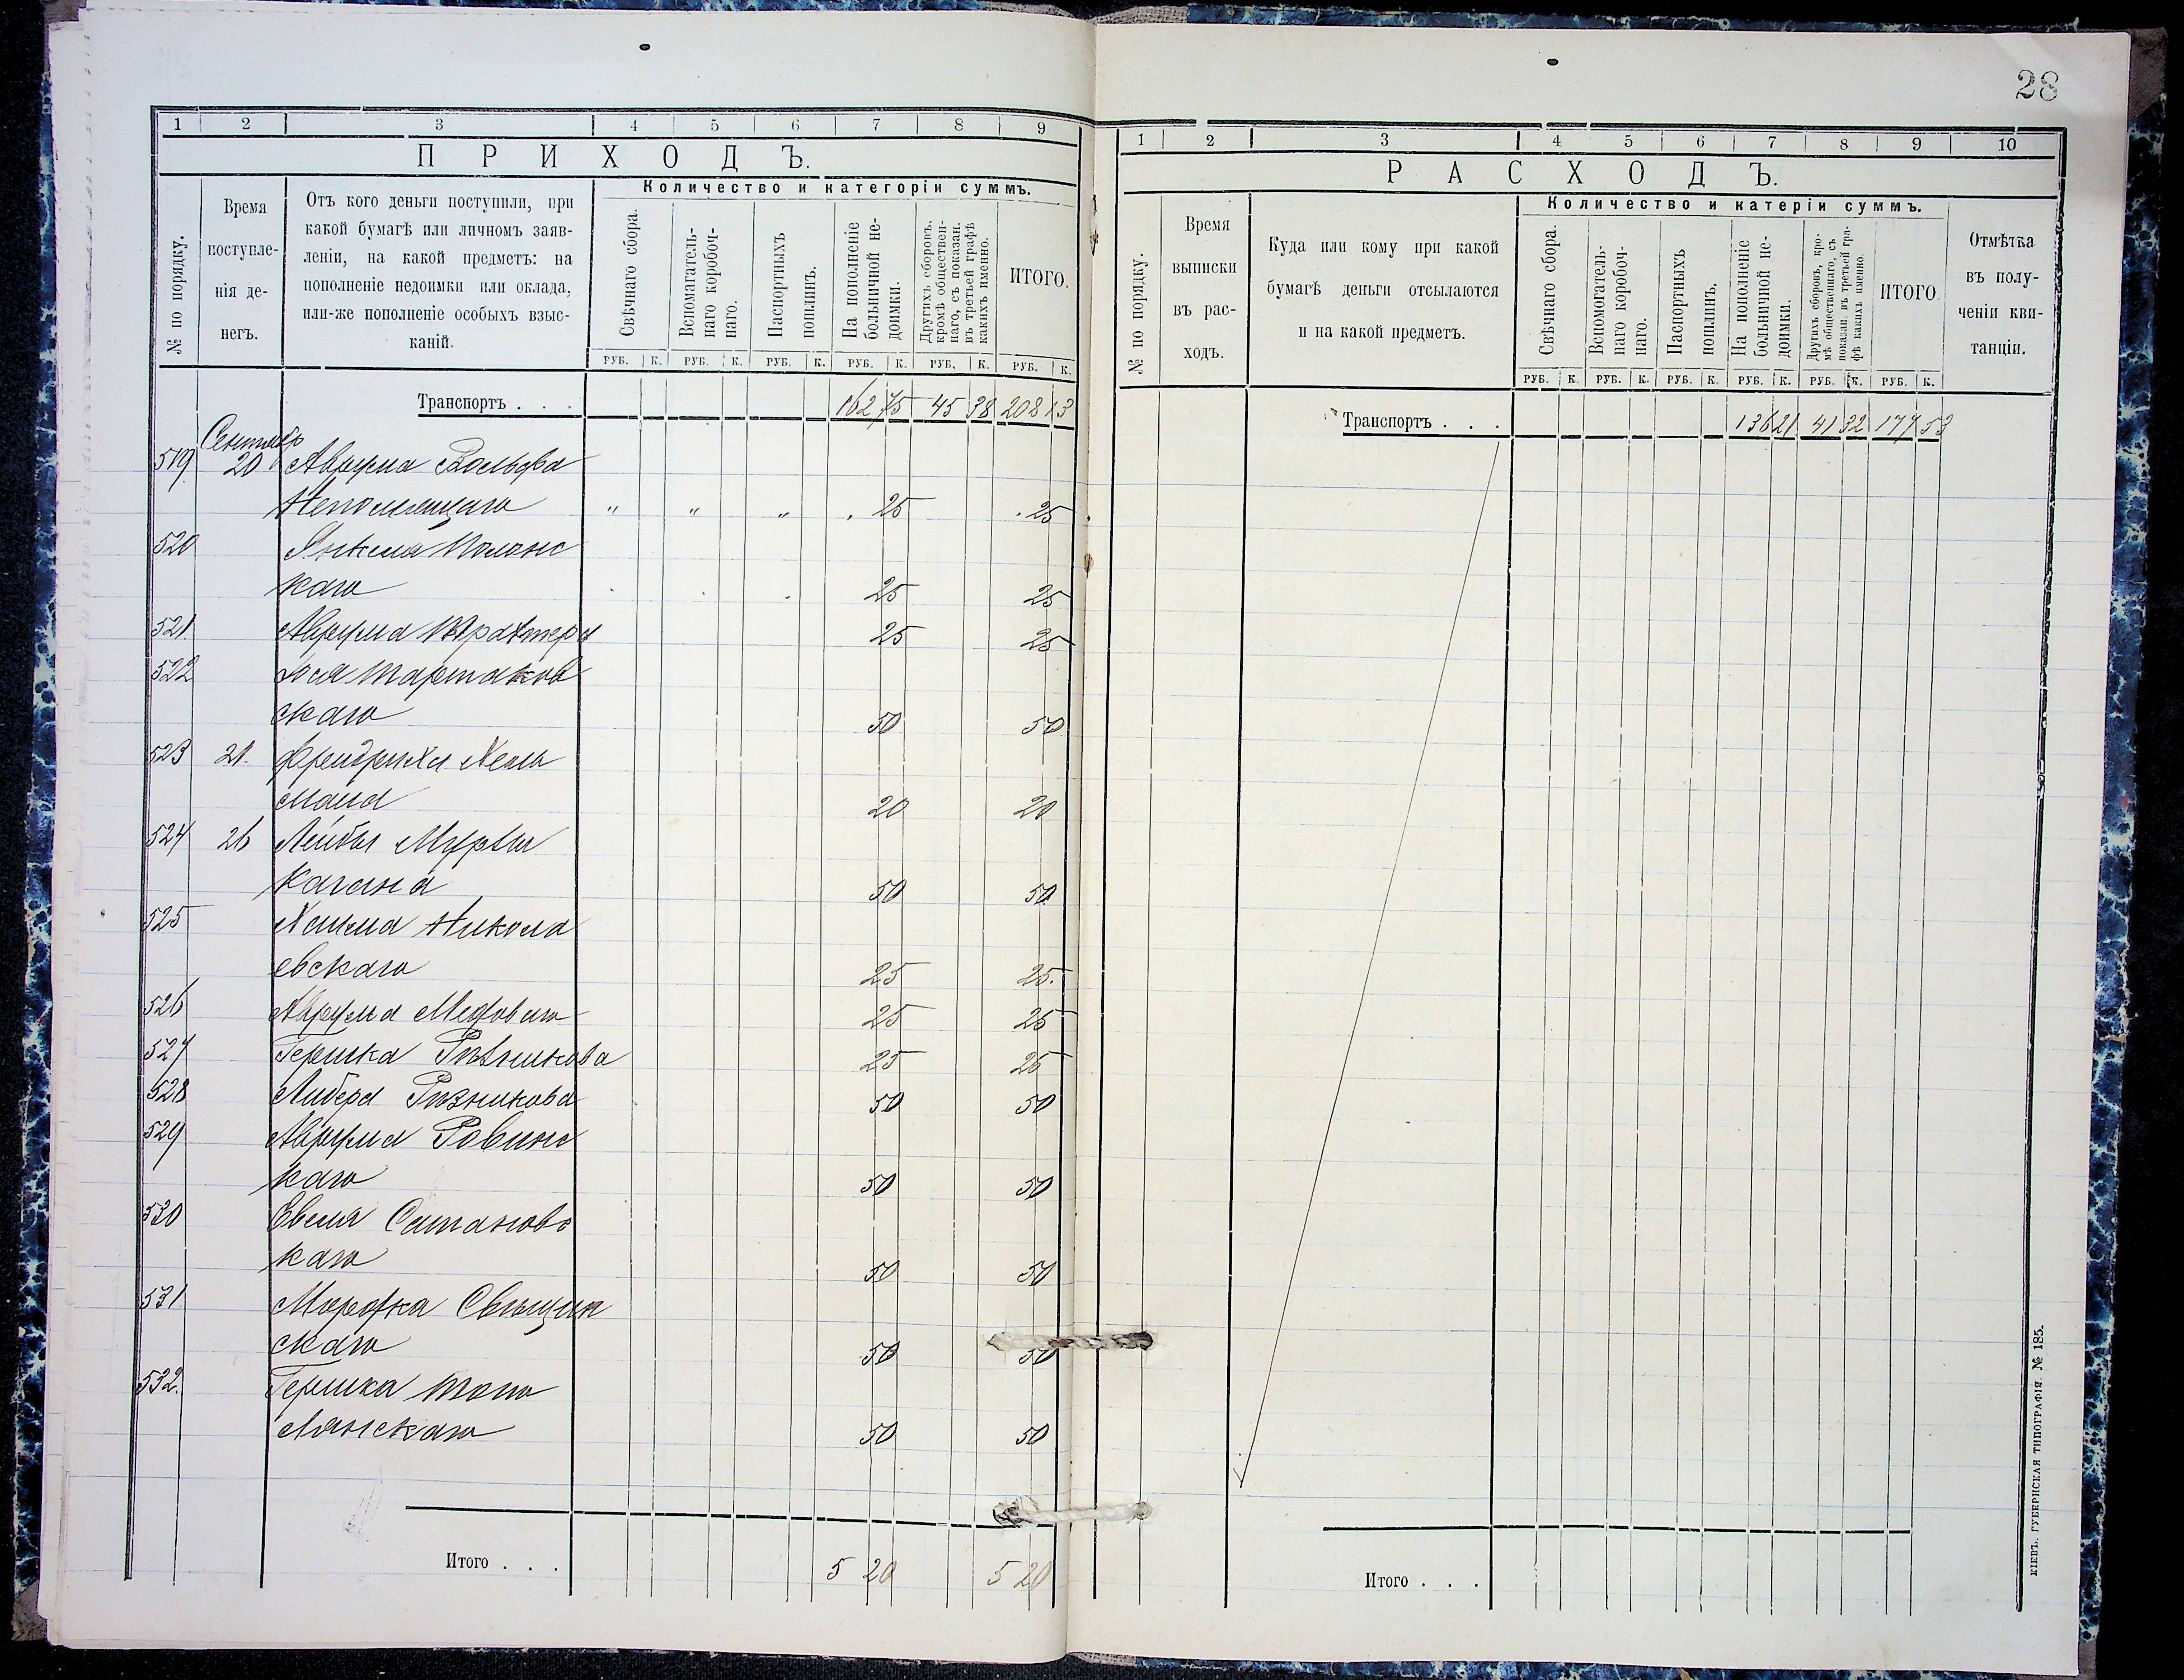 28
1 2 3 4 5 6 7 8 9
ПРИХОДЪ.
№ по порядку.
Время поступле-
нія де-
негъ.
Отъ кого деньги поступили, при
какой бумагѣ или личномъ заяв-
леніи, на какой предметъ: на
пополненіе недоимки или оклада,
или-же пополненіе особыхъ взыс-
каній.
Количество и категоріи суммъ.
Свѣчнаго сбора.
Вспомогатель-
наго коробоч-
наго.
Паспортныхъ
пошлинъ.
На пополненіе
больничной не-
доимки.
Другихъ сборовъ,
кромѣ обществен-
наго, съ показан.
въ третьей графѣ
какихъ именно.
ИТОГО.
РУБ. К. РУБ. К. РУБ. К. РУБ. К. РУБ. К. РУБ. К.
Транспортъ . . . 162 75 45 38 208 13
Сентябр
519 20 Аврума Вольфа
Непомнящаго " " " . 25 . 25
520 Янкеля Полонс
каго 25 25
521 Аврума 25 25
522 Іося Тартаков
скаго 50 50
523 21. Фридриха
мана 20 20
524 26 Лейбы
Кагана 50 50
525 Хаима Никола
евскаго 25 25.
526 Аврума Медоваго 25 25
527 Гершка Рѣзникова 25 25
528 Либера Рѣзникова 50 50
529 Аврума Ровинс
каго 50 50
530 Евеля Сатановс
каго 50 50
531 Мордка Свящин
скаго 50 50
532. Гершка Топо
лянскаго 50 50
Итого . . . 5 20 5 20
1 2 3 4 5 6 7 8 9 10
РАСХОДЪ.
№ по порядку.
Время
выписки
въ рас-
ходъ.
Куда или кому при какой
бумагѣ деньги отсылаются
и на какой предметъ.
Количество и катеріи суммъ.
Свѣчнаго сбора.
Вспомогатель-
наго коробоч-
наго.
Паспортныхъ
пошлинъ.
На пополненіе
больничной не-
доимки.
Другихъ сборовъ, кро-
мѣ общественнаго, съ
показан. въ третьей гра-
фѣ какихъ именно.
ИТОГО.
Отмѣтка
въ полу-
ченіи кви-
танціи.
РУБ. К. РУБ. К. РУБ. К. РУБ. К. РУБ. К. РУБ. К.
Транспортъ . . . 136 21 41 32 177 53
Итого . . .
КІЕВЪ. ГУБЕРНСКАЯ ТИПОГРАФІЯ. № 185.